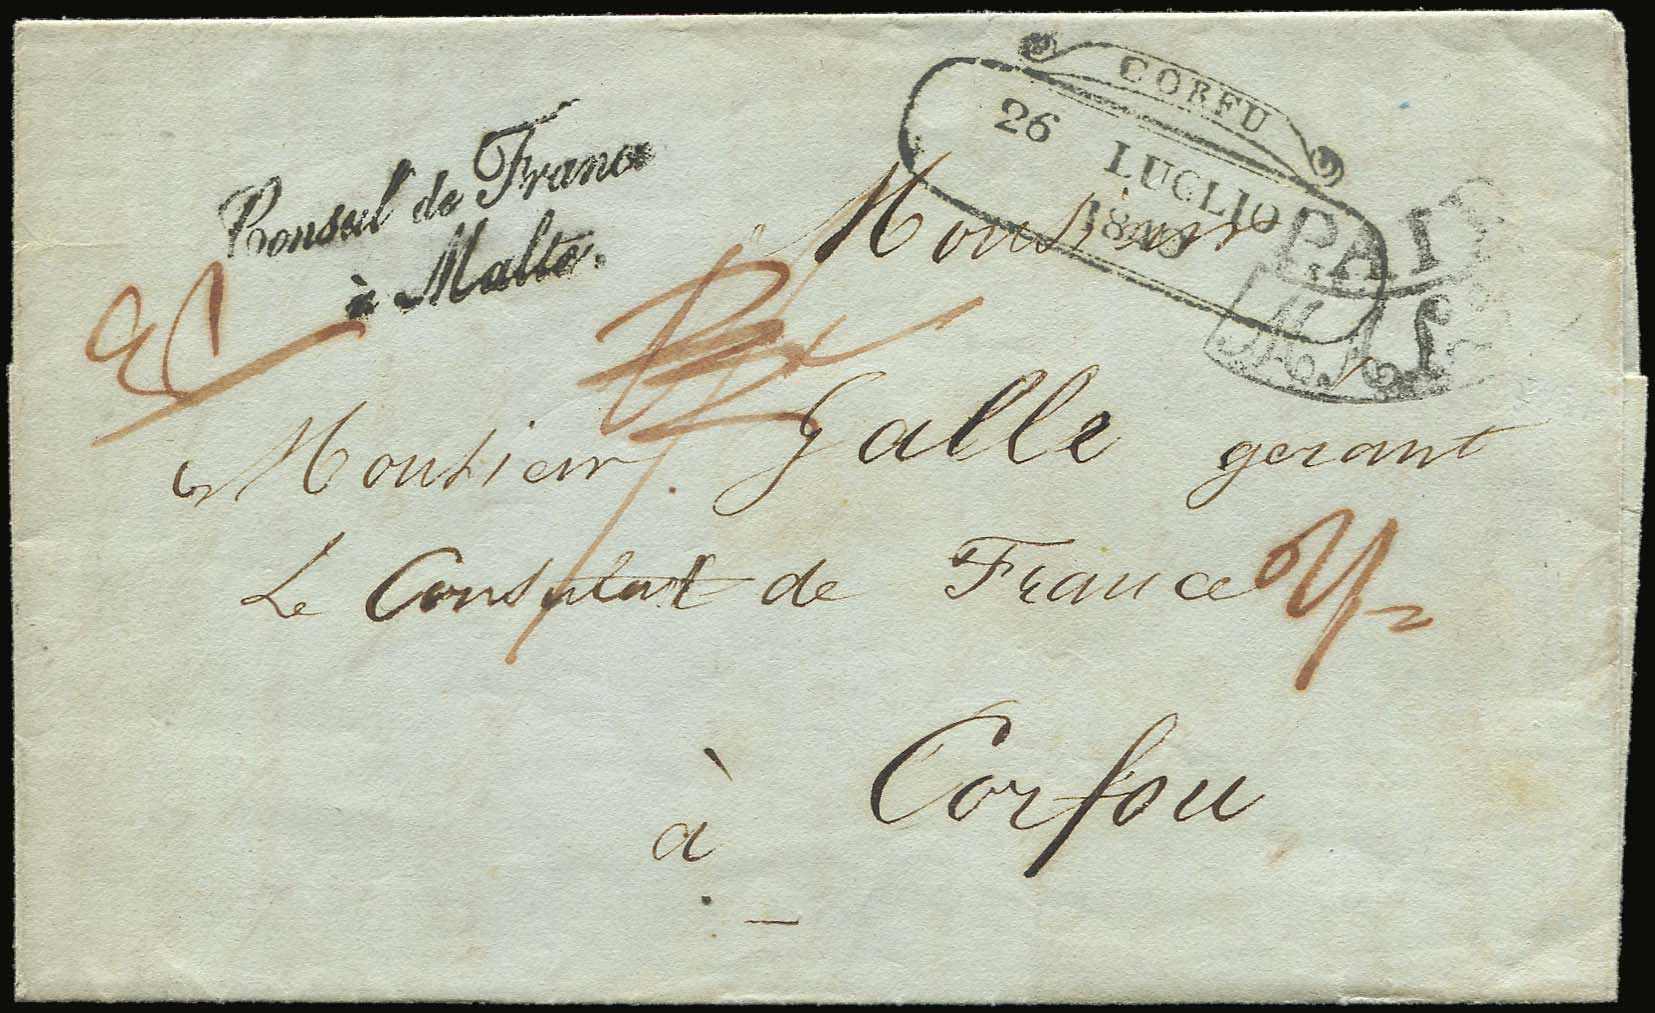 Consul de France
à Malte.
CORFU
26 LUGLIO
PAID
Monsieur
Monsieur Galle gerant
Le Consulat de France
à Corfou